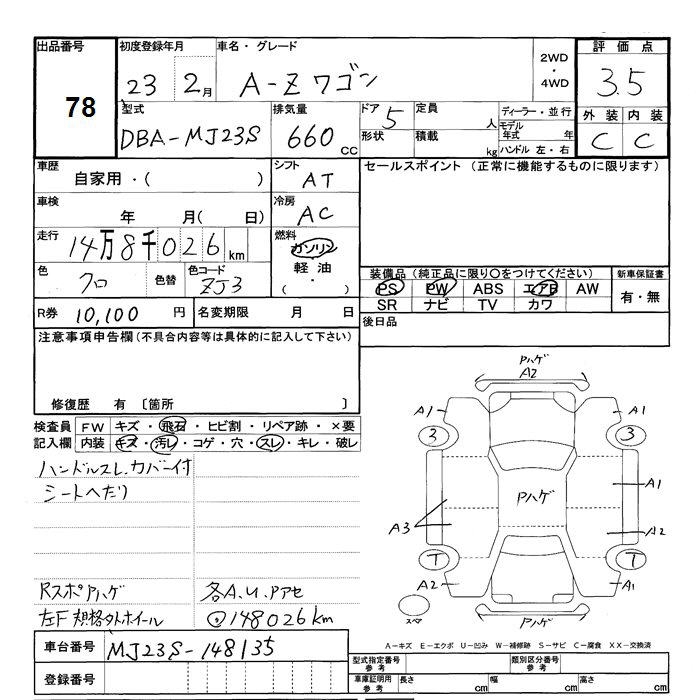 出品番号 78
初度登録年月 23 2月
車名・グレード A-Zワゴン
2WD・4WD
評価点 3.5
型式 DBA-MJ23S
排気量 660 cc
ドア 5
形状
定員 人
積載 kg
ディーラー・並行
モデル年式 年
ハンドル 左・右
外装 内装
C C
車歴 自家用・( )
シフト AT
セールスポイント (正常に機能するものに限ります)
車検 年 月( 日)
冷房 AC
走行 14万8千026 km
燃料 ガソリン
軽油
( ・ )
色 クロ
色替
色コード ZJ3
装備品(純正品に限り○をつけてください)
PS PW ABS エアB AW
SR ナビ TV カワ
新車保証書
有・無
R券 10,100 円
名変期限 月 日
後日品
注意事項申告欄(不具合内容等は具体的に記入して下さい)
修復歴 有 〔箇所 〕
検査員記入欄
FW キズ・飛石・ヒビ割・リペア跡・×要
内装 キズ・汚レ・コゲ・穴・スレ・キレ・破レ
ハンドルスレ.カバー付
シートヘタリ
RスポPハゲ 各A.U.Pアセ
左F規格外ホイール ⊙148026km
Pハゲ
A2
A1 A1
3 3
Pハゲ
A1
A3 A2
T T
A2 A1
スペア
Pハゲ
A-キズ E-エクボ U-凹み W-補修跡 S-サビ C-腐食 XX-交換済
車台番号 MJ23S-148135
登録番号
型式指定番号 参考
類別区分番号 参考
車庫証明用 参考
長さ cm 幅 cm 高さ cm